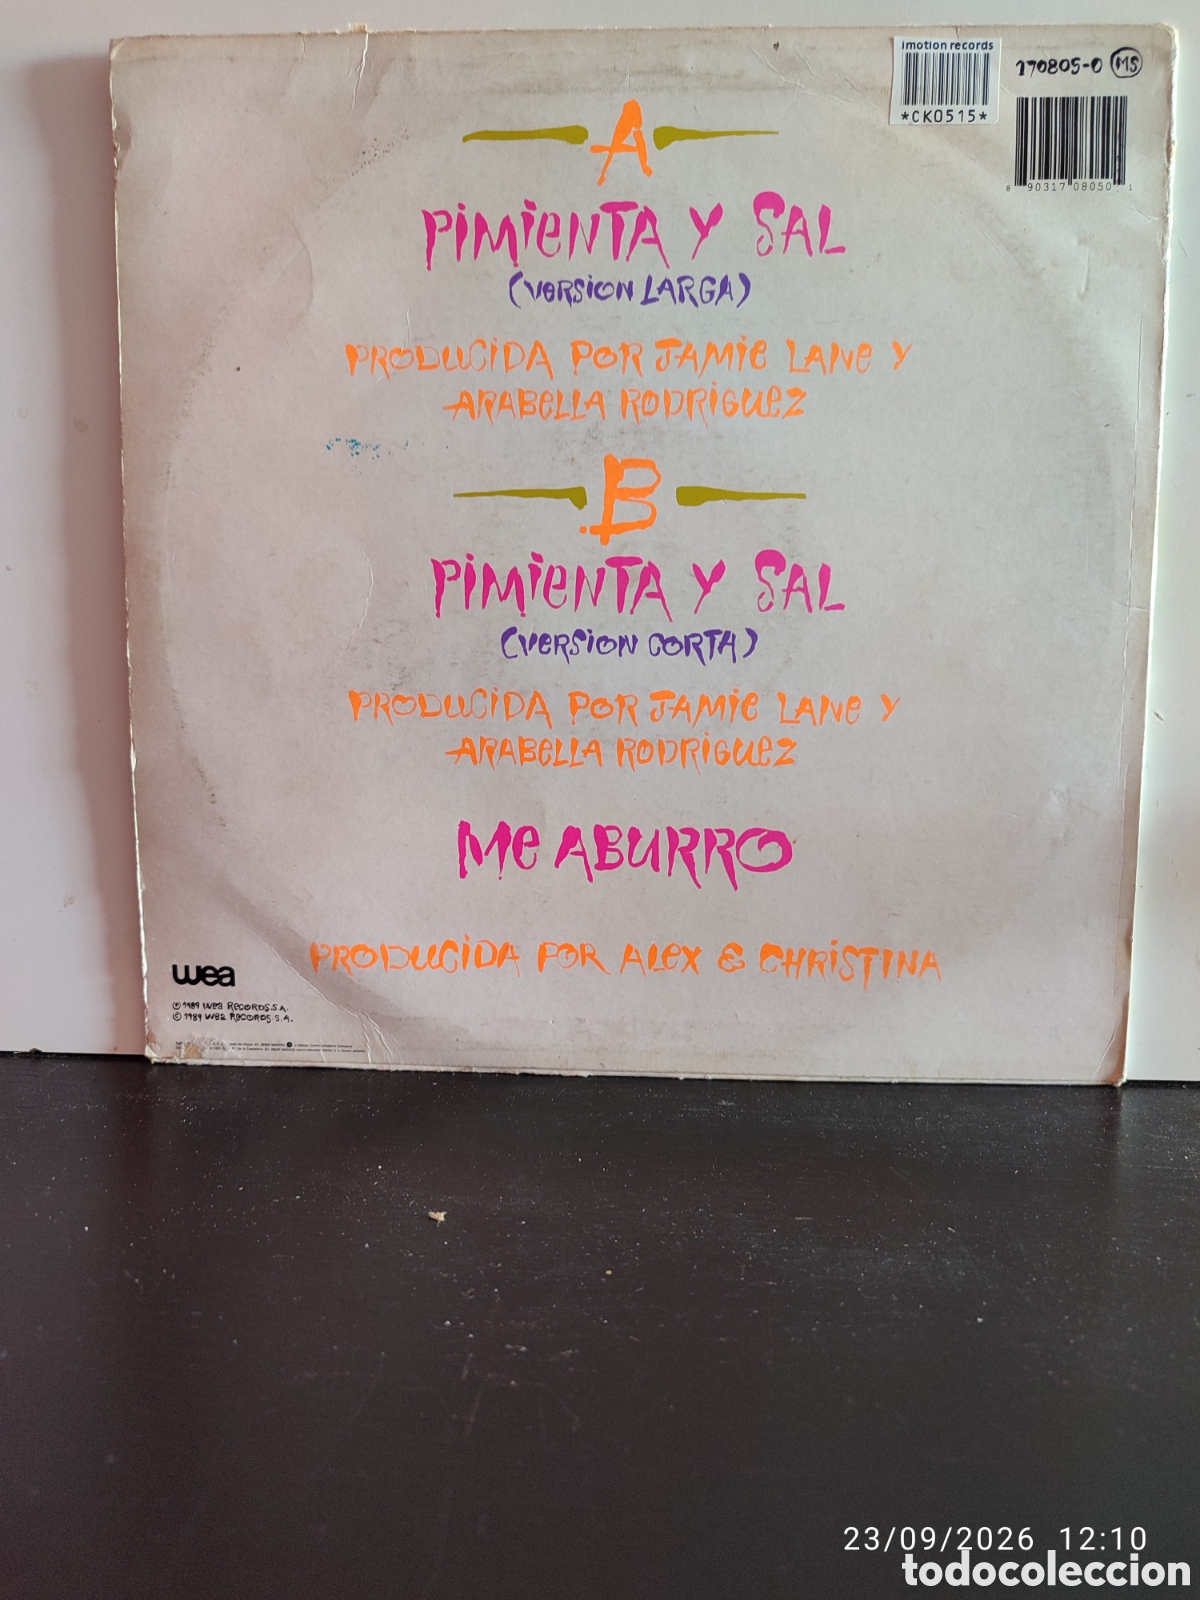 imotion records
*CK0515*
170805-0 MS
8 90317 08050 1
A
PIMIENTA Y SAL
(VERSION LARGA)
PRODUCIDA POR JAMIE LANE Y
ARABELLA RODRIGUEZ
B
PIMIENTA Y SAL
(VERSION CORTA)
PRODUCIDA POR JAMIE LANE Y
ARABELLA RODRIGUEZ
ME ABURRO
PRODUCIDA POR ALEX & CHRISTINA
wea
℗ 1989 WEA RECORDS.S.A.
© 1989 WEA RECORDS.S.A.
23/09/2026 12:10
todocoleccion